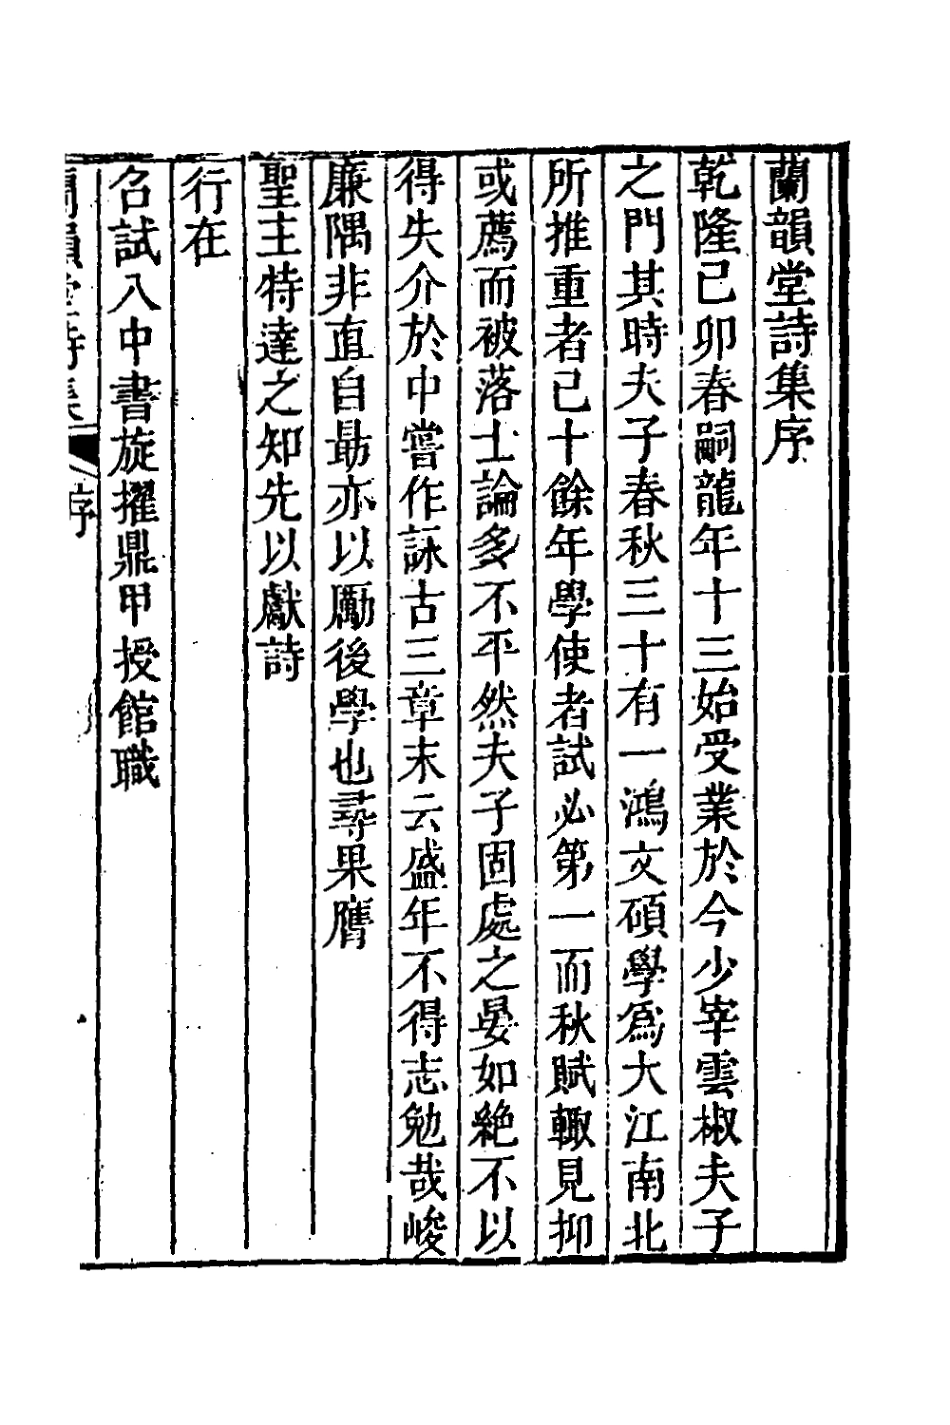 蘭韻堂詩集序
乾隆己卯春嗣龍年十三始受業於今少宰雲椒夫子
之門其時夫子春秋三十有一鴻文碩學爲大江南北
所推重者己十餘年學使者試必第一而秋賦輙見抑
或薦而被落士論多不平然夫子固處之晏如絶不以
得失介於中嘗作詠古三章末云盛年不得志勉哉峻
廉隅非直自勗亦以勵後學也尋果膺
聖主特達之知先以獻詩
行在
召試入中書旋擢鼎甲授館職
蘭韻堂詩集 序